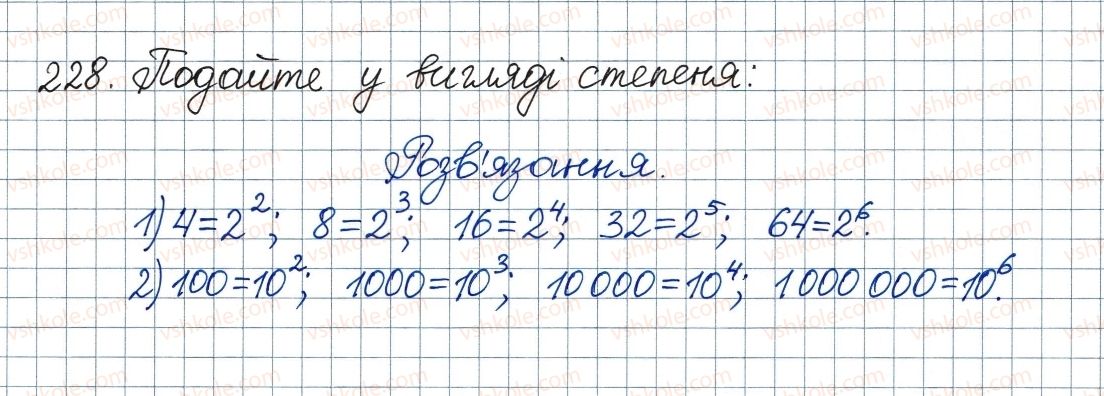 228. Подайте у вигляді степеня:
Розв'язання.
1) 4=2²; 8=2³; 16=2⁴; 32=2⁵; 64=2⁶.
2) 100=10²; 1000=10³; 10 000=10⁴; 1 000 000=10⁶.